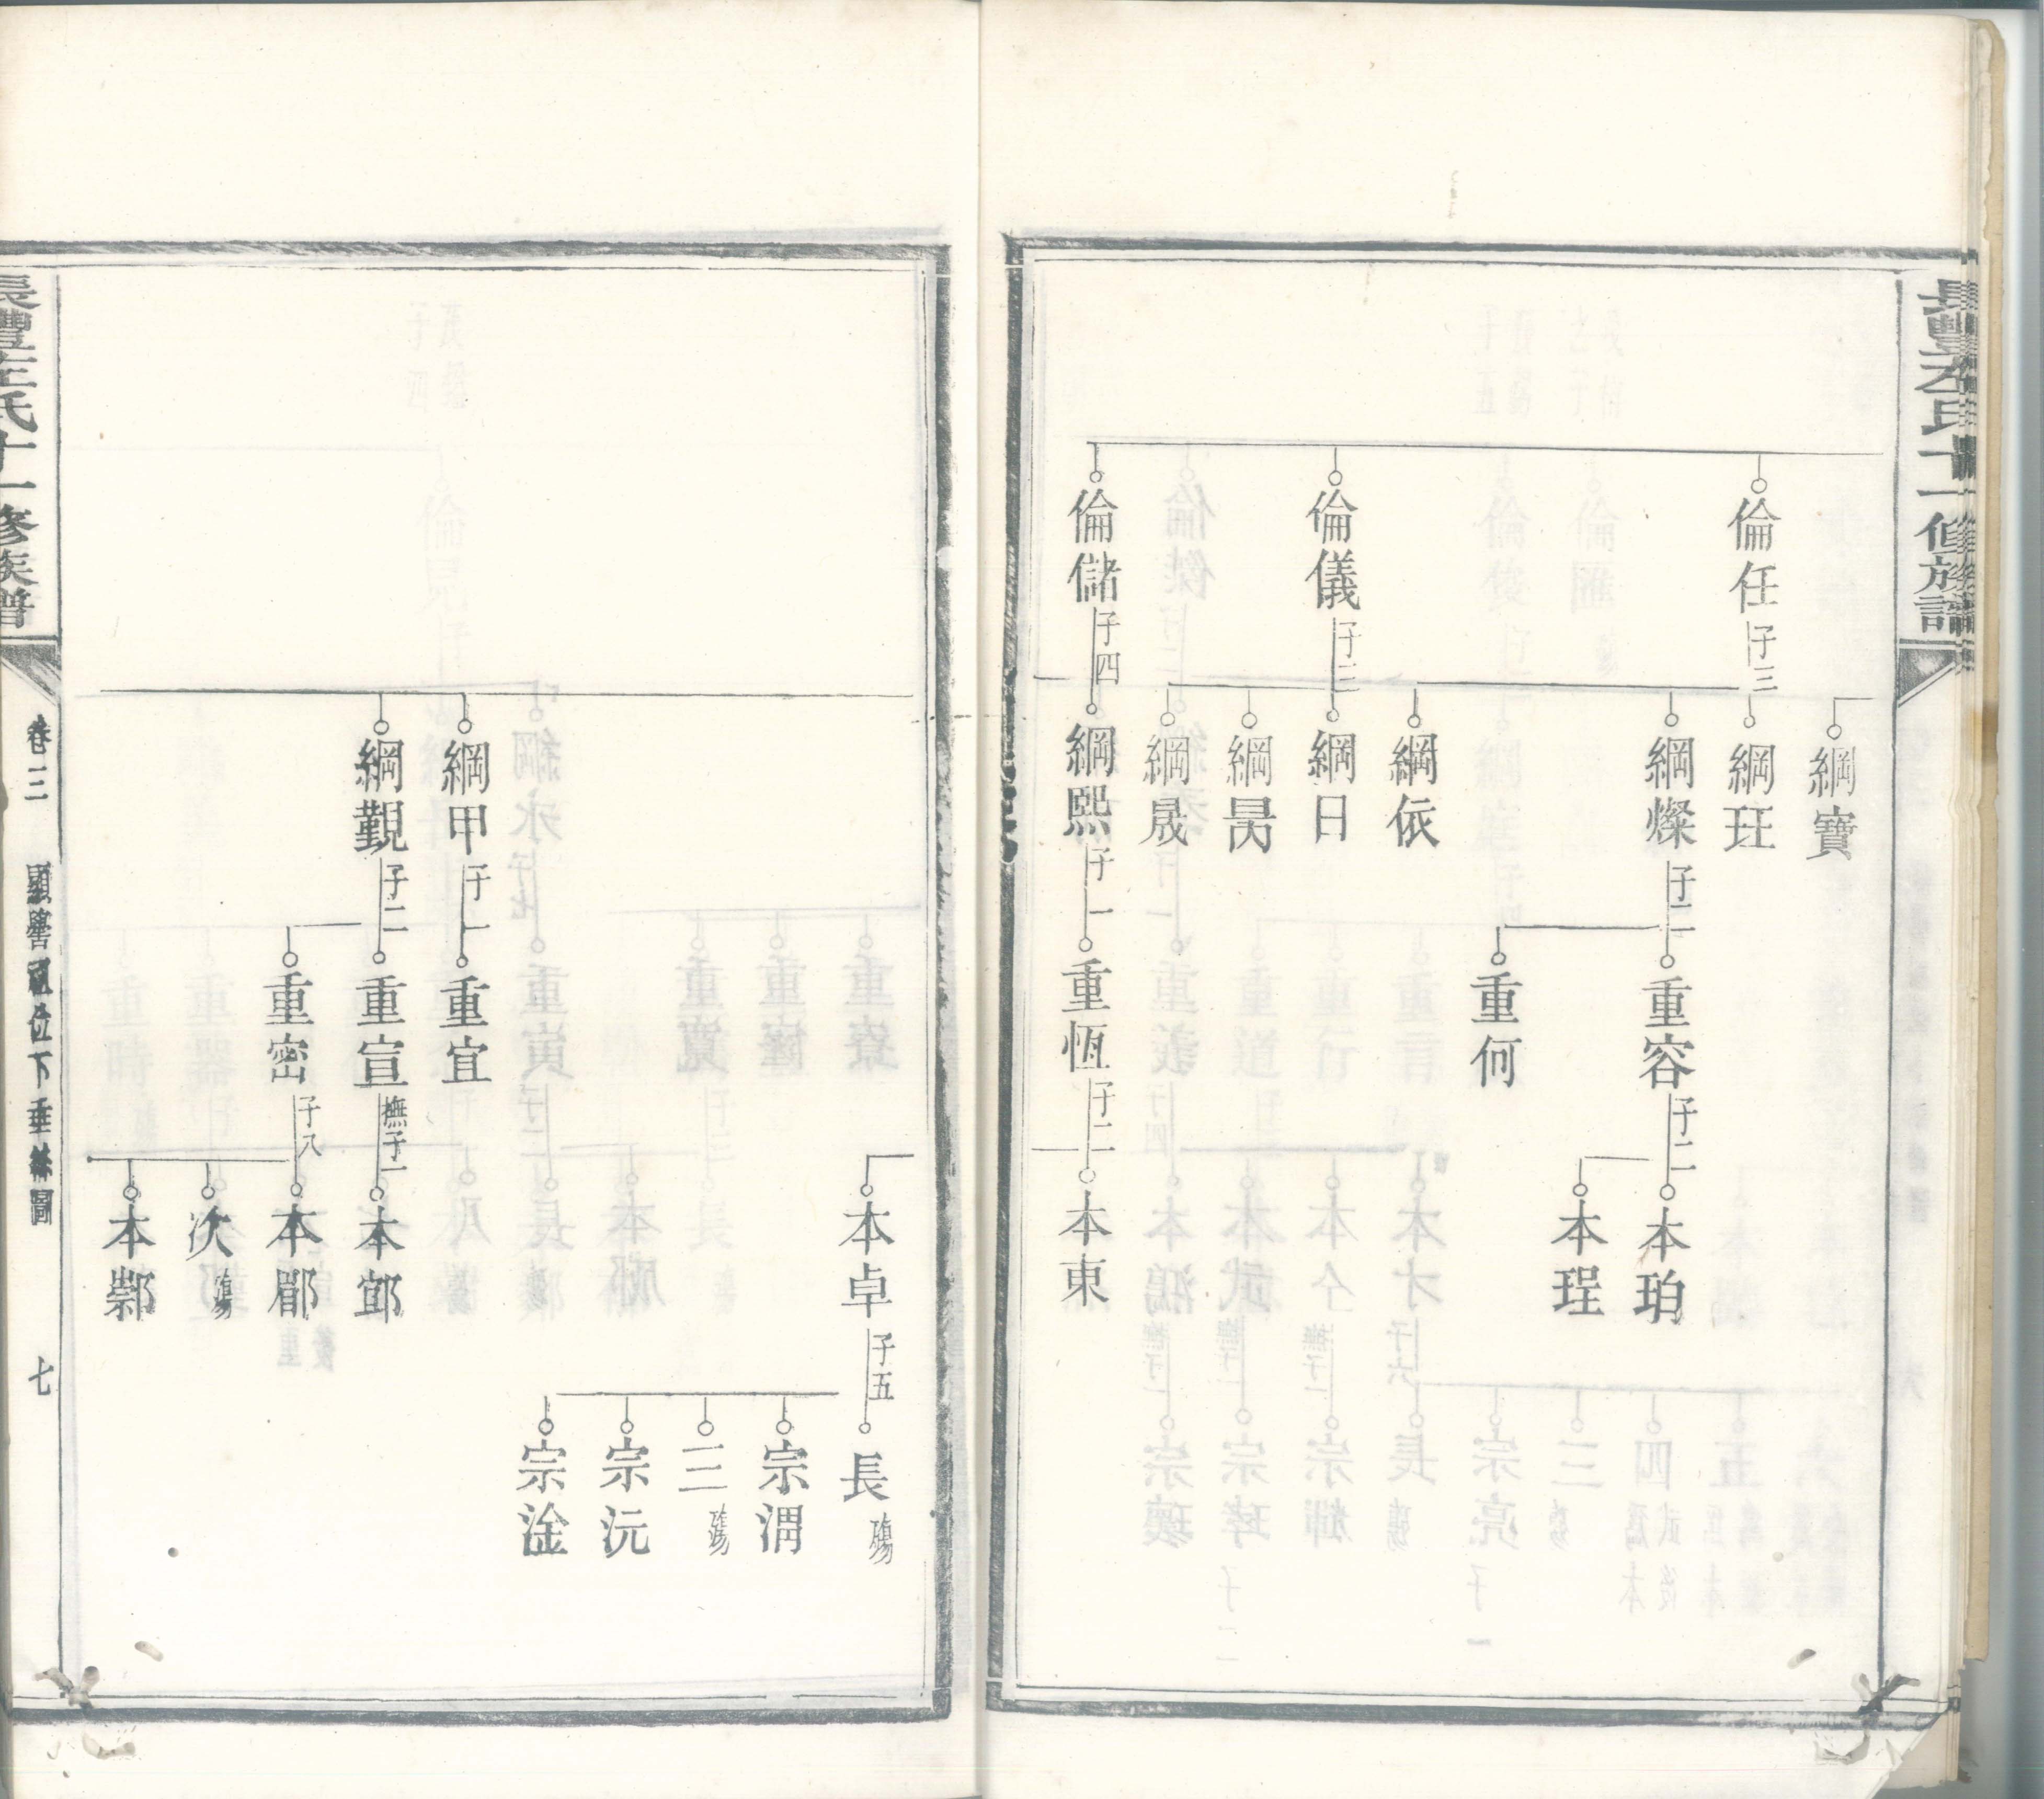 長豐左氏十一修族譜
倫任 子三
倫儀 子三
倫儲 子四
綱寶
綱玨
綱燦 子二
綱依
綱日
綱昺
綱晟
綱熙 子一
重容 子二
重何
重恆 子二
本珀
本珵
本東
綱甲 子一
綱覲 子二
重宜
重宣 撫子一
重密 子八
本卓 子五
本䣊
本郿
次 殤
本鄴
長 殤
宗渭
三 殤
宗沅
宗淦
長豐左氏十一修族譜
卷三
位下垂絲圖
七